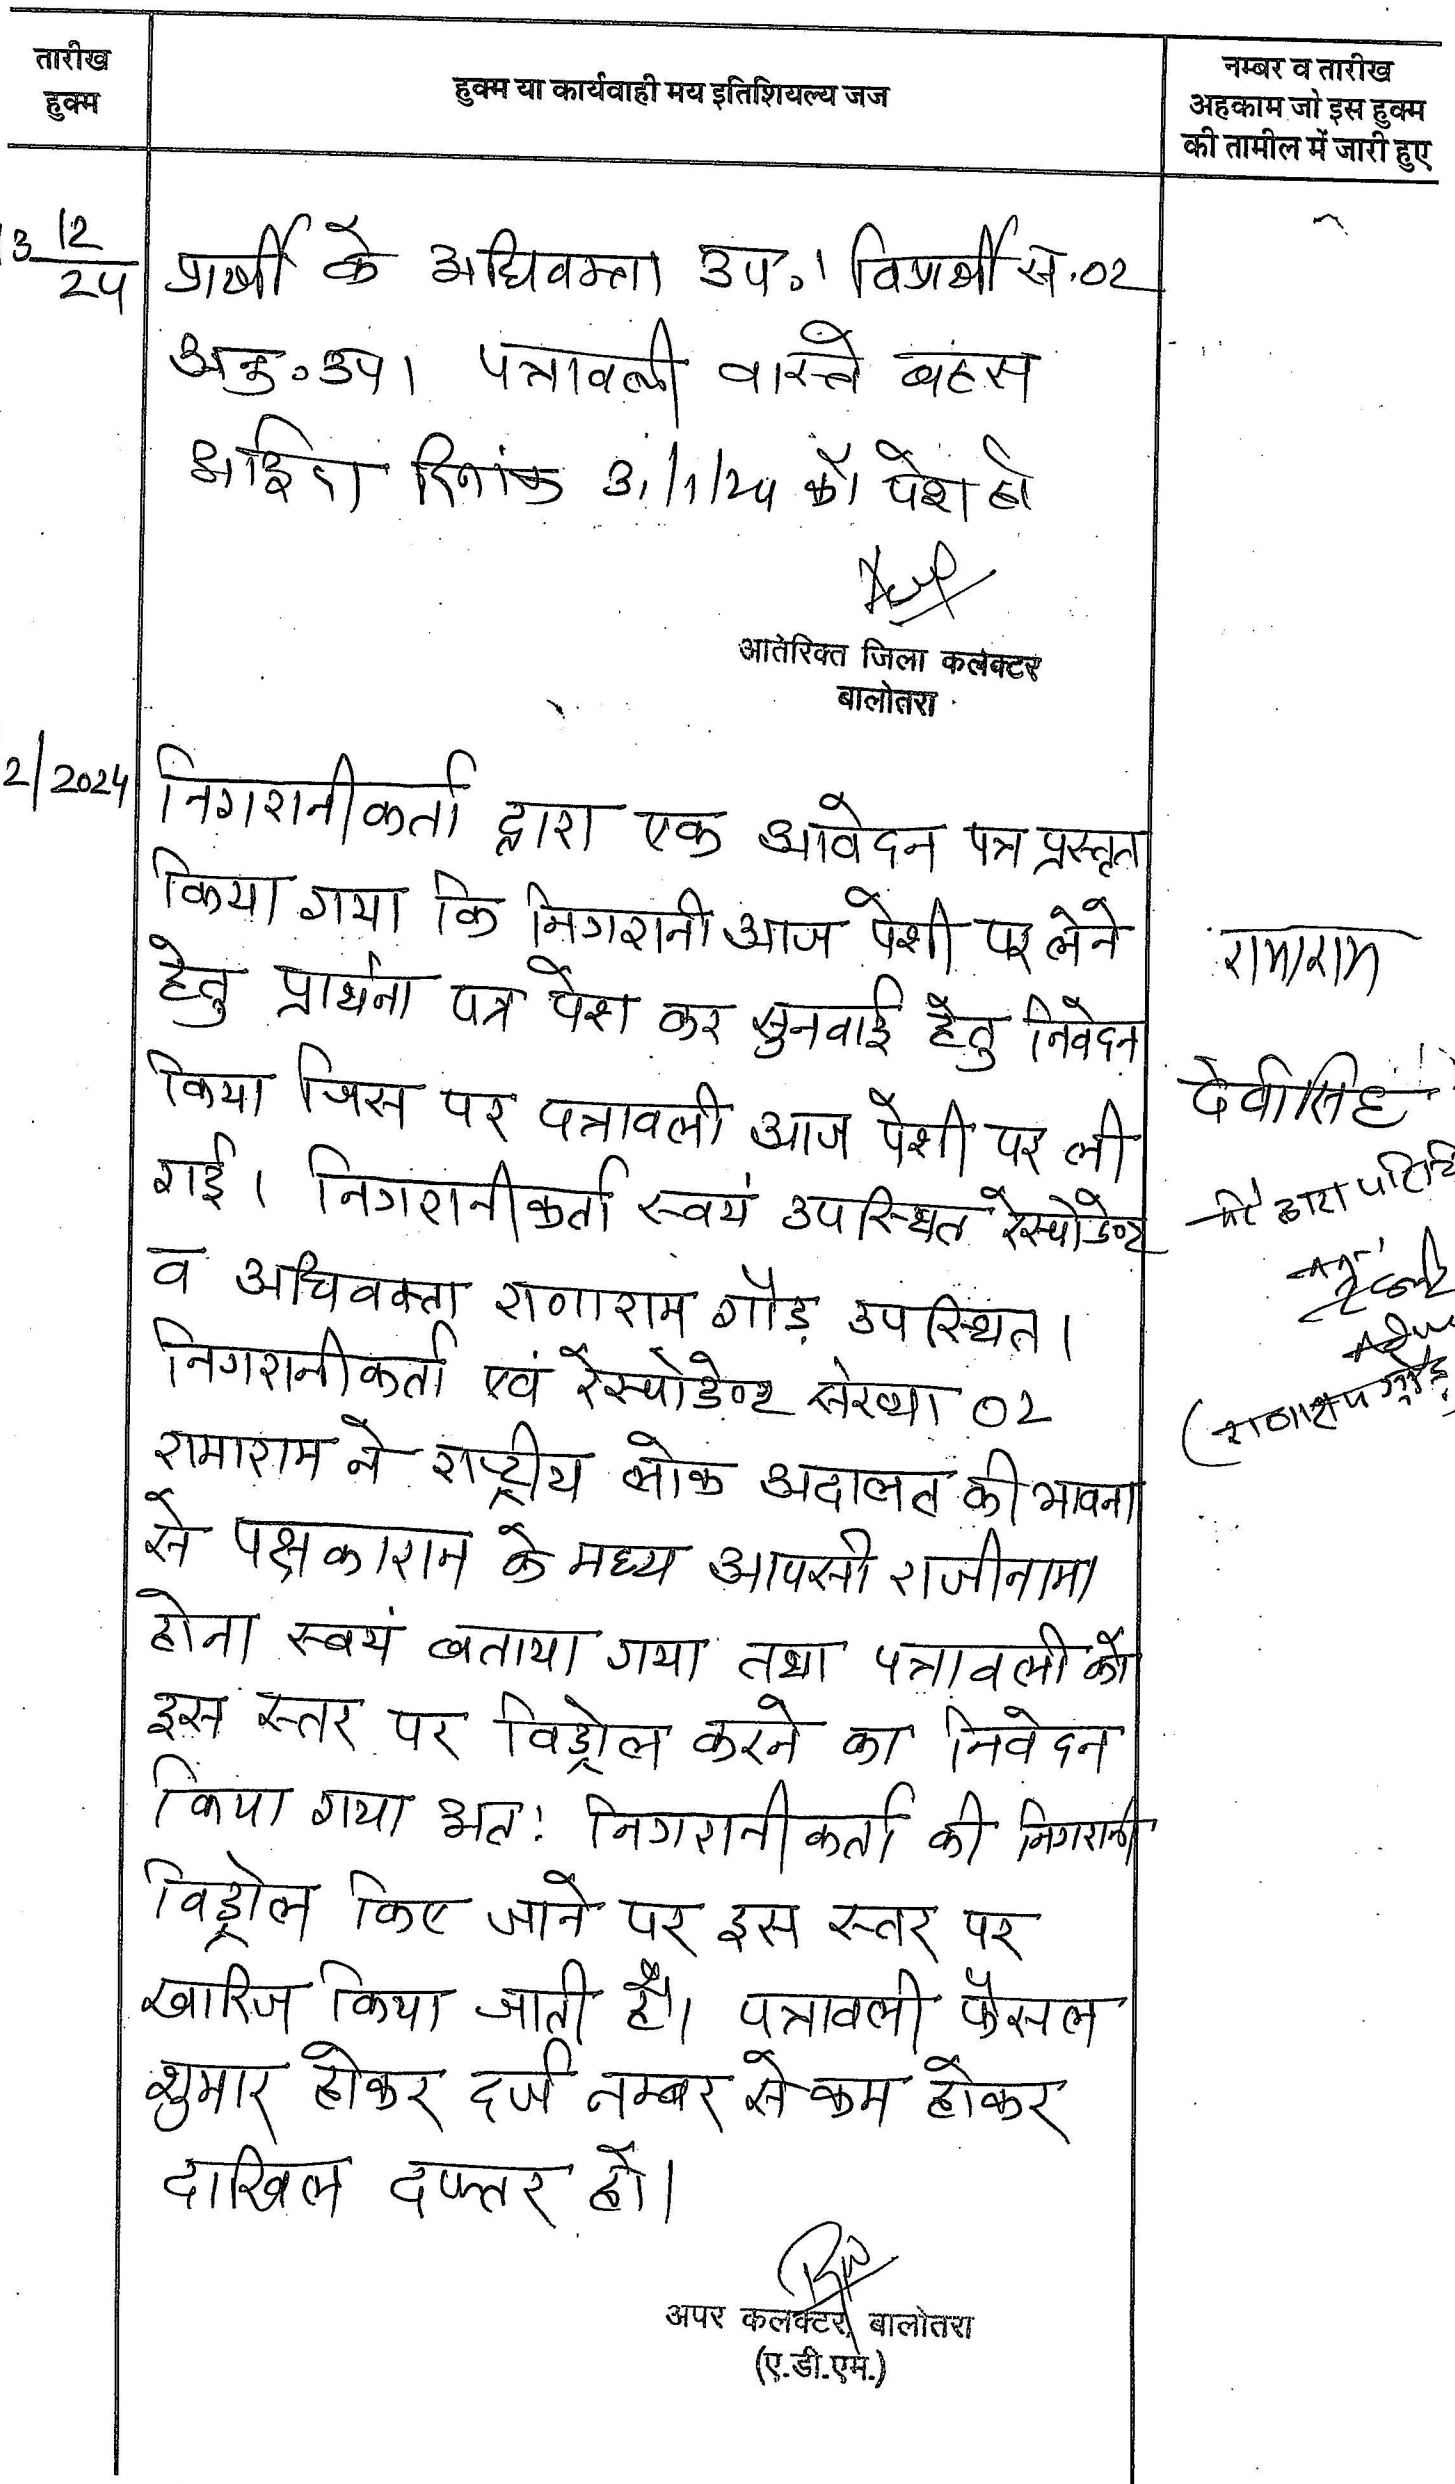 तारीख
हुक्म
हुक्म या कार्यवाही मय इतिशियल्य जज
नम्बर व तारीख
अहकाम जो इस हुक्म
की तामील में जारी हुए
3 12
24
प्रार्थी के अधिवक्ता उप०। विप्रार्थी स.02
अनु०उप। पत्रावली वास्ते बहस
दिनांक को पेश हो
आतेरिक्त जिला कलक्टर
बालोतरा
2/2024
निगरानीकर्ता द्वारा एक आवेदन पत्र प्रस्तुत
किया गया कि निगरानी आज पेशी पर लेने
हेतु प्रार्थना पत्र पेश कर सुनवाई हेतु निवेदन
किया जिस पर पत्रावली आज पेशी पर ली
गई। निगरानीकर्ता स्वयं उपस्थित रेस्पोडेण्ट
व अधिवक्ता राणाराम गौड़ उपस्थित।
निगरानीकर्ता एवं रेस्पोडेण्ट संख्या 02
रामाराम ने राष्ट्रीय लोक अदालत की भावना
से पक्षकारान के मध्य आपसी राजीनामा
होना स्वयं बताया गया तथा पत्रावली को
इस स्तर पर विड्रोल करने का निवेदन
किया गया अत: निगरानीकर्ता की निगरानी
विड्रोल किए जाने पर इस स्तर पर
खारिज किया जाती है। पत्रावली फैसल
शुमार होकर दर्ज नम्बर से कम होकर
दाखिल दफ्तर हो।
रामाराम
देवीसिंह
द्वारा
अपर कलक्टर, बालोतरा
(ए.डी.एम.)